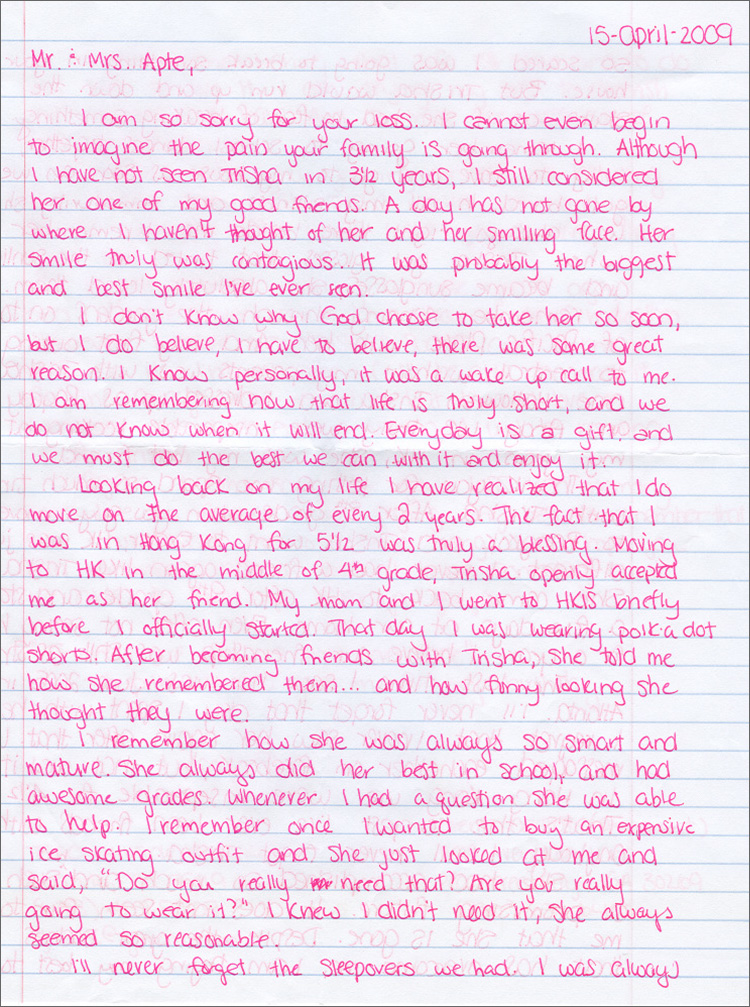 15-April-2009
Mr. & Mrs. Apte,
I am so sorry for your loss. I cannot even begin
to imagine the pain your family is going through. Although
I have not seen Trisha in 3½ years, I still considered
her one of my good friends. A day has not gone by
where I haven't thought of her and her smiling face. Her
smile truly was contagious. It was probably the biggest
and best smile I've ever seen.
I don't know why God choose to take her so soon,
but I do believe, I have to believe, there was some great
reason. I know personally, it was a wake up call to me.
I am remembering now that life is truly short, and we
do not know when it will end. Everyday is a gift and
we must do the best we can with it and enjoy it.
Looking back on my life I have realized that I do
move on the average of every 2 years. The fact that I
was in Hong Kong for 5½ was truly a blessing. Moving
to HK in the middle of 4th grade, Trisha openly accepted
me as her friend. My mom and I went to HKIS briefly
before I officially started. That day I was wearing polk-a dot
shorts. After becoming friends with Trisha, she told me
how she remembered them... and how funny looking she
thought they were.
I remember how she was always so smart and
mature. She always did her best in school, and had
awesome grades. Whenever I had a question she was able
to help. I remember once I wanted to buy an expensive
ice skating outfit and she just looked at me and
said, "Do you really need that? Are you really
going to wear it?" I knew I didn't need it, she always
seemed so reasonable.
I'll never forget the sleepovers we had. I was always